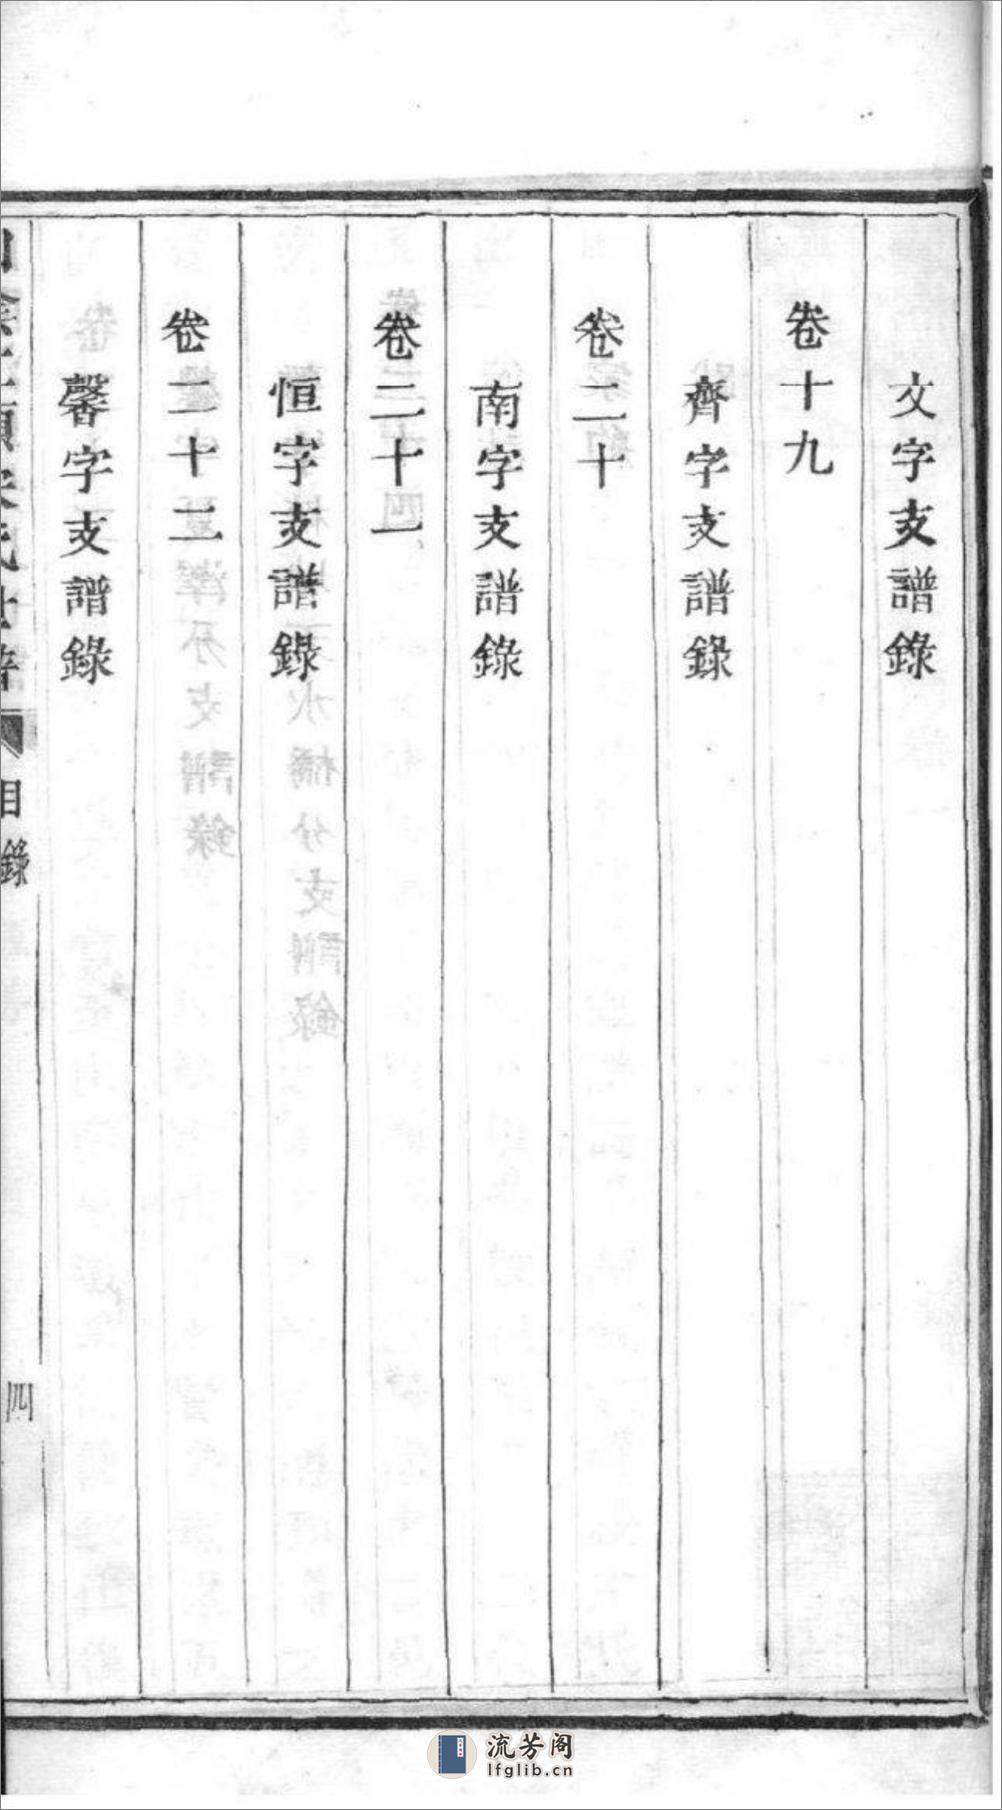 文字支譜錄
卷十九
齊字支譜錄
卷二十
南字支譜錄
卷二十一
恒字支譜錄
卷二十二
馨字支譜錄
目錄
四
流芳阁
lfglib.cn